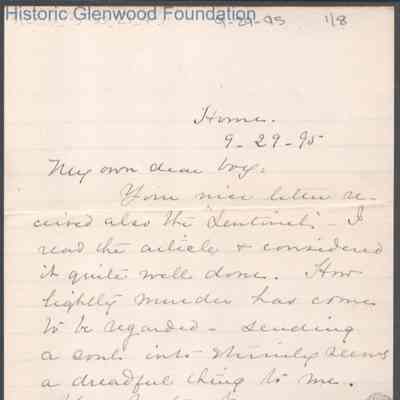 Historic Glenwood Foundation
9-29-95 1/8
Home.
9-29-95
My own dear boy:
Your nice letter re-
ceived also the Sentinel - I
read the article & considered
it quite well done. How
lightly murder has come
to be regarded - sending
a soul into eternity seems
a dreadful thing to me.